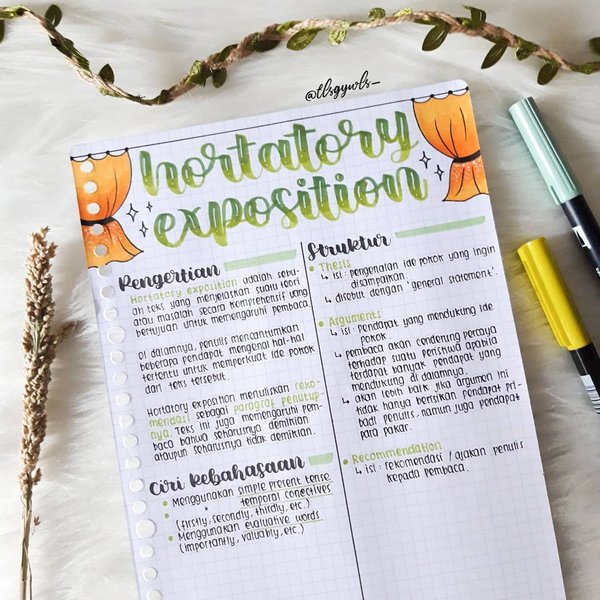 @tlsgywls_
hortatory
exposition
Pengertian
Hortatory exposition adalah sebu-
ah teks yang menjelaskan suatu teori
atau masalah secara komprehensif yang
bertujuan untuk memengaruhi pembaca
Di dalamnya, penulis mencantumkan
beberapa pendapat mengenai hal-hal
tertentu untuk memperkuat ide pokok
dari teks tersebut.
Hortatory exposition menuliskan reko-
mendasi sebagai paragraf penutup-
nya. Teks ini juga memengaruhi pem-
baca bahwa seharusnya demikian
ataupun seharusnya tidak demikian.
Ciri kebahasaan
• Menggunakan simple present tense
• " temporal conectives
(firstly, secondly, thirdly, etc.)
• Menggunakan evaluative words
(importantly, valuably, etc.)
Struktur
• Thesis
↳ isi : pengenalan ide pokok yang ingin
disampaikan.
↳ disebut dengan 'general statement'.
• Arguments
↳ isi : pendapat yang mendukung ide
pokok.
↳ pembaca akan cenderung percaya
terhadap suatu peristiwa apabila
terdapat banyak pendapat yang
mendukung di dalamnya.
↳ akan lebih baik jika argumen ini
tidak hanya berisikan pendapat pri-
badi penulis, namun juga pendapat
para pakar.
• Recommendation
↳ isi : rekomendasi / ajakan penulis
kepada pembaca.